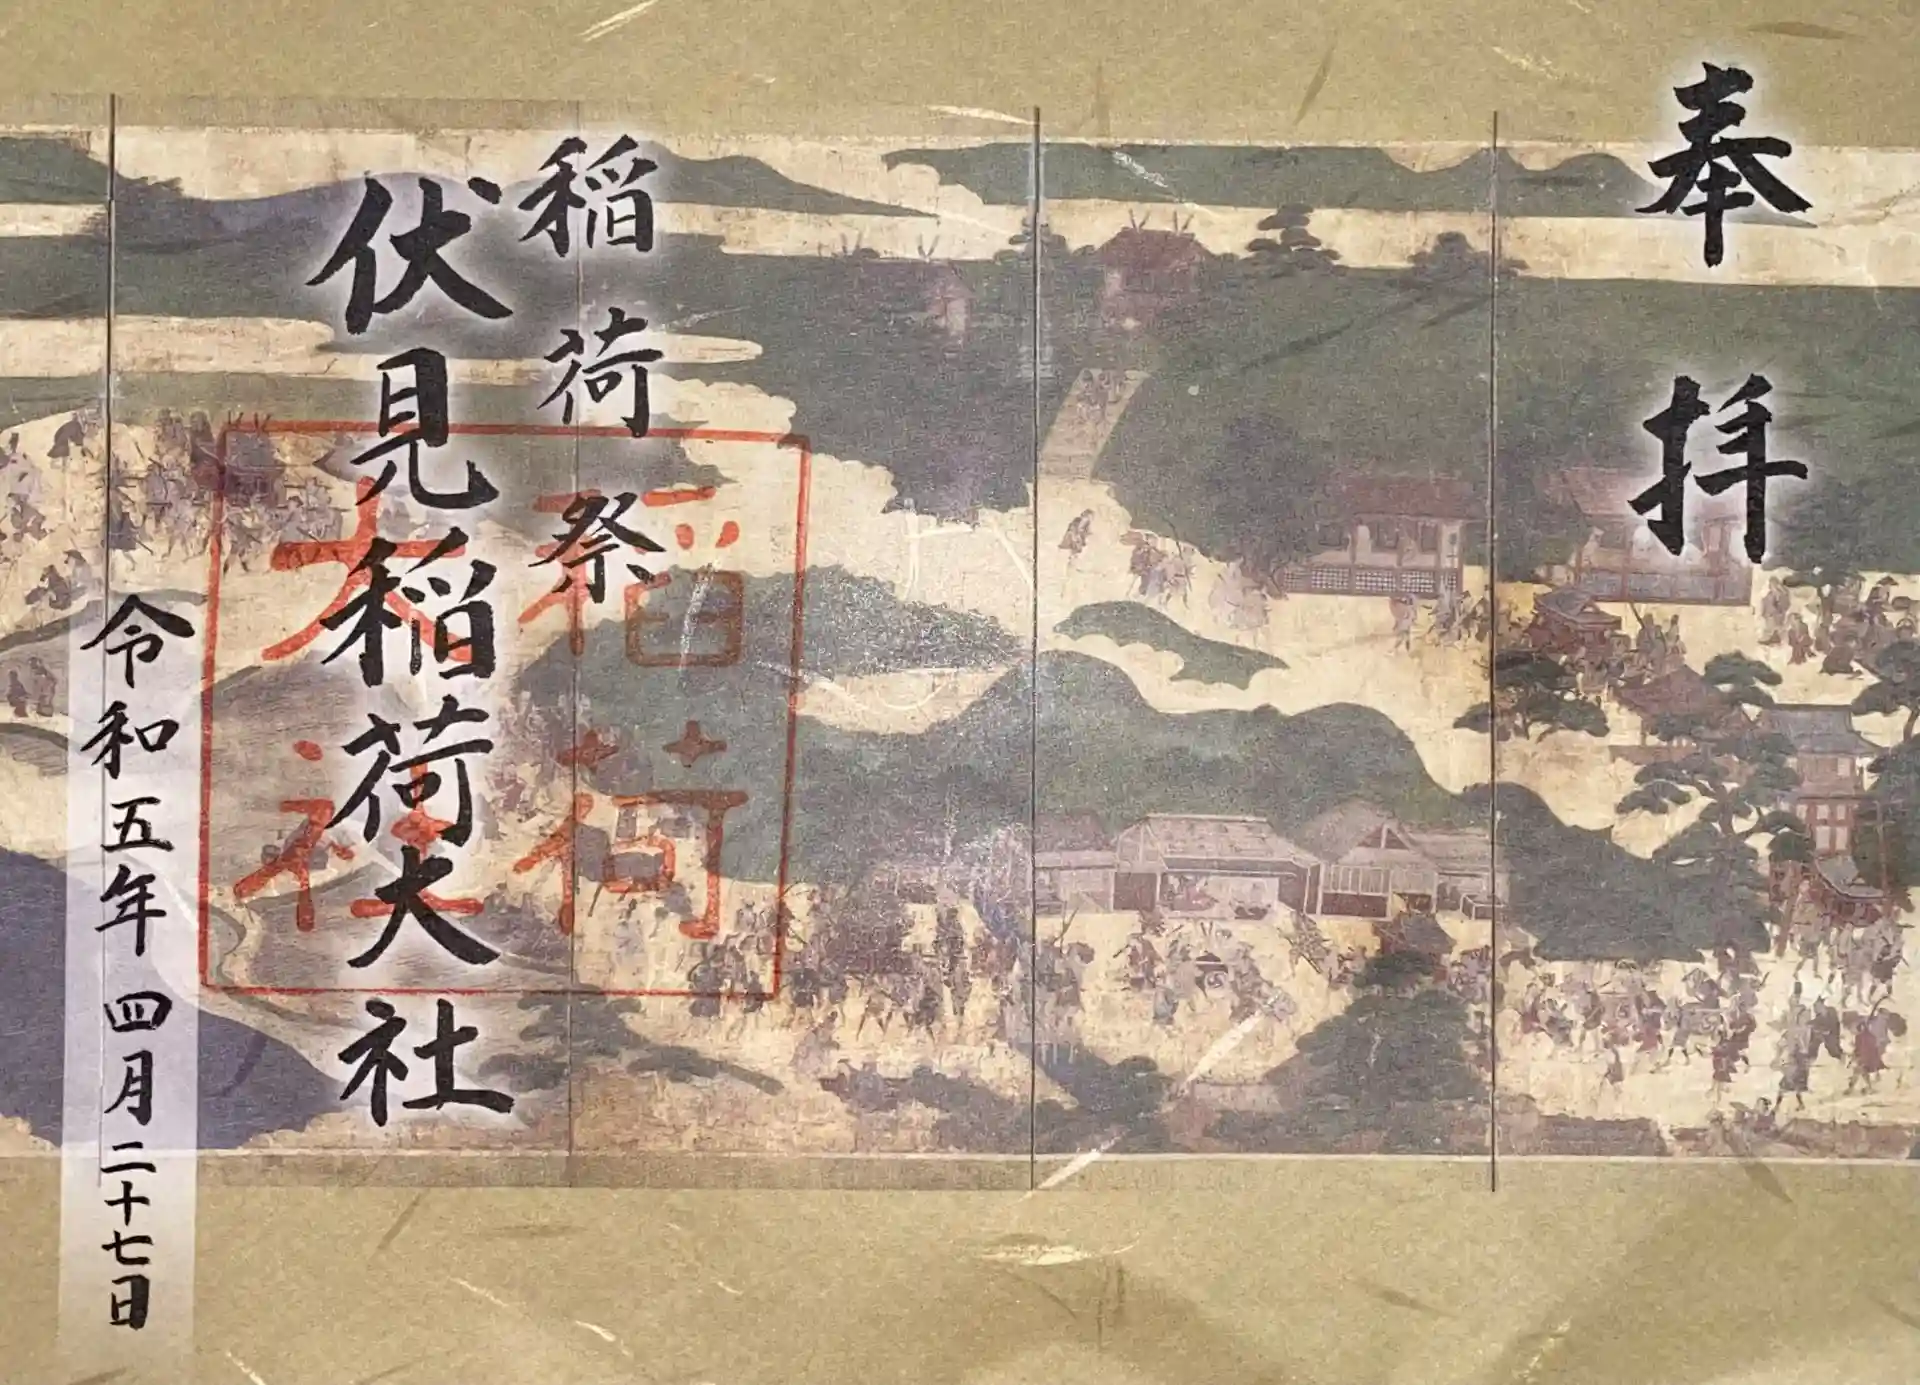 奉拝
稲荷祭
伏見稲荷大社
稲荷
大社
令和五年四月二十七日